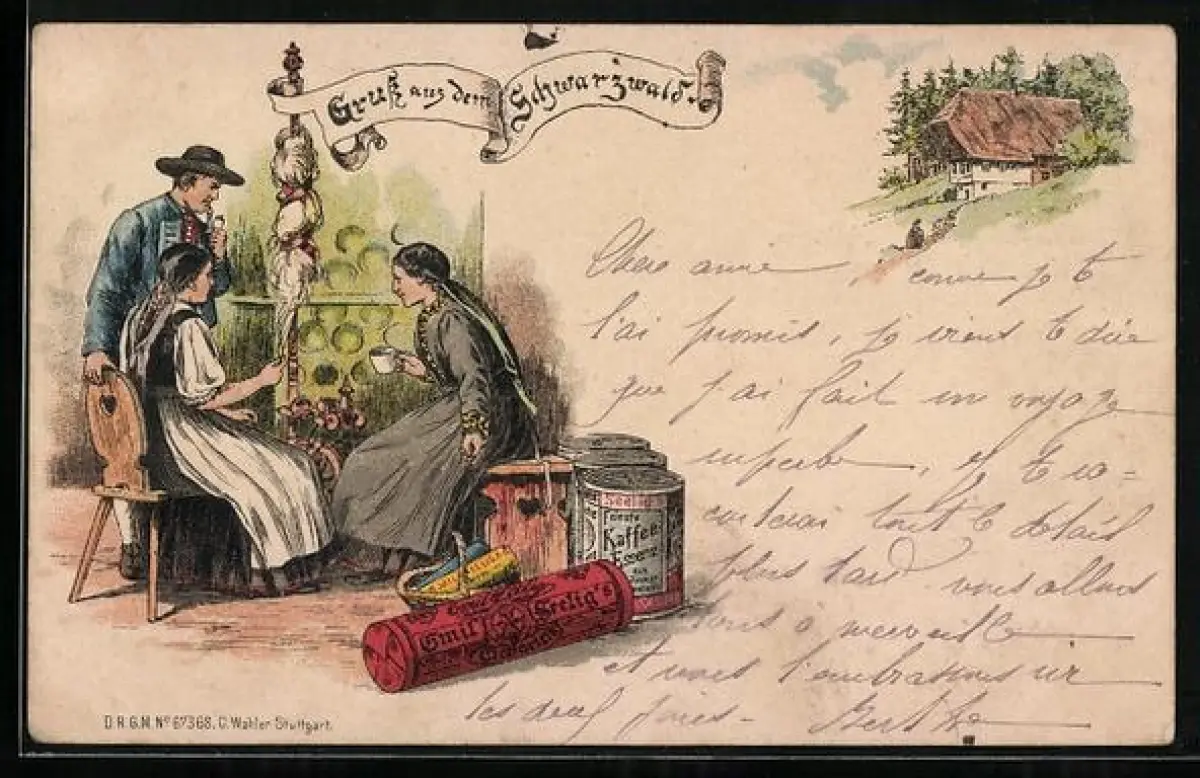 Gruß aus dem Schwarzwald.
Chère amie, comme je te
l'ai promis, je viens te dire
que j'ai fait un voyage
superbe, je te ra-
conterai tout le détail
plus tard nous allons
tous à merveille
et nous t'embrassons sur
tes deux joues -
Berthe
Seelig's
Kaffee
Essenz
Emil Seelig's
D.R.G.M. Nº 67368. C. Wahler Stuttgart.